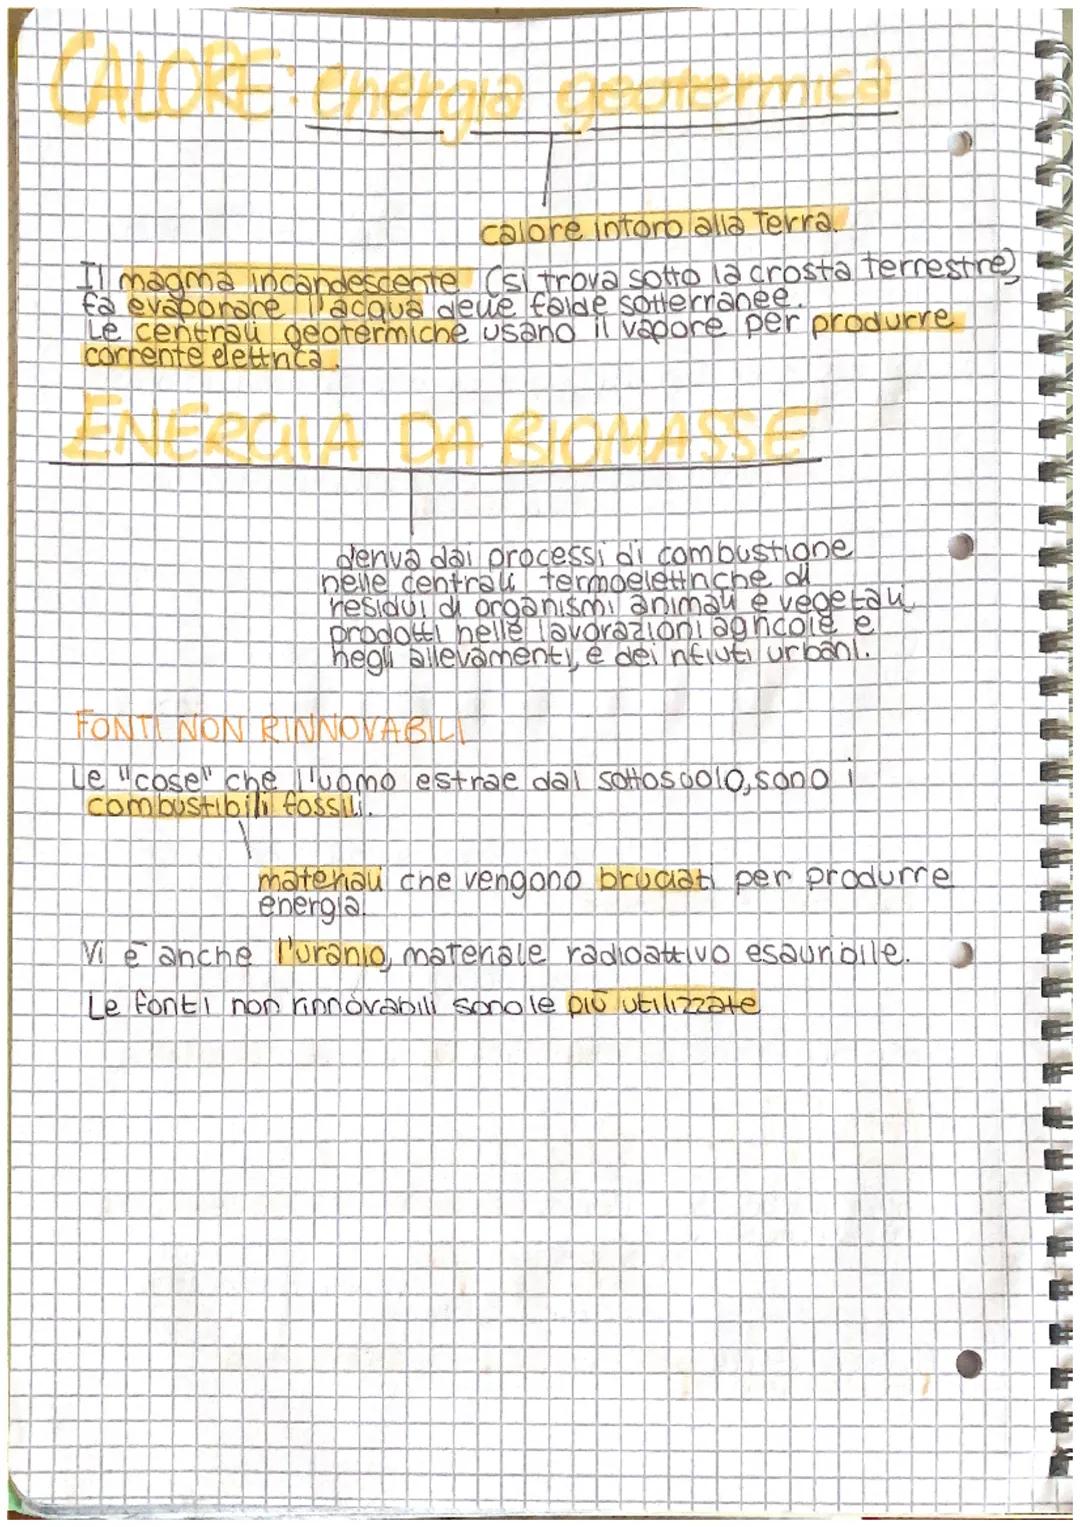 CALORE: energia geotermica
calore intoro alla Terra.
Il magma incandescente (si trova sotto la crosta terrestre),
fa evaporare l'acqua delle falde sotterranee.
Le centrali geotermiche usano il vapore per produrre
corrente elettrica.
ENERGIA DA BIOMASSE
deriva dai processi di combustione
nelle centrali termoelettriche di
residui di organismi animali e vegetali
prodotti nelle lavorazioni agricole e
negli allevamenti, e dei rifiuti urbani.
FONTI NON RINNOVABILI
Le "cose" che l'uomo estrae dal sottosuolo, sono i
combustibili fossili.
materiali che vengono bruciati per produrre
energia.
Vi è anche l'uranio, materiale radioattivo esauribile.
Le fonti non rinnovabili sono le più utilizzate